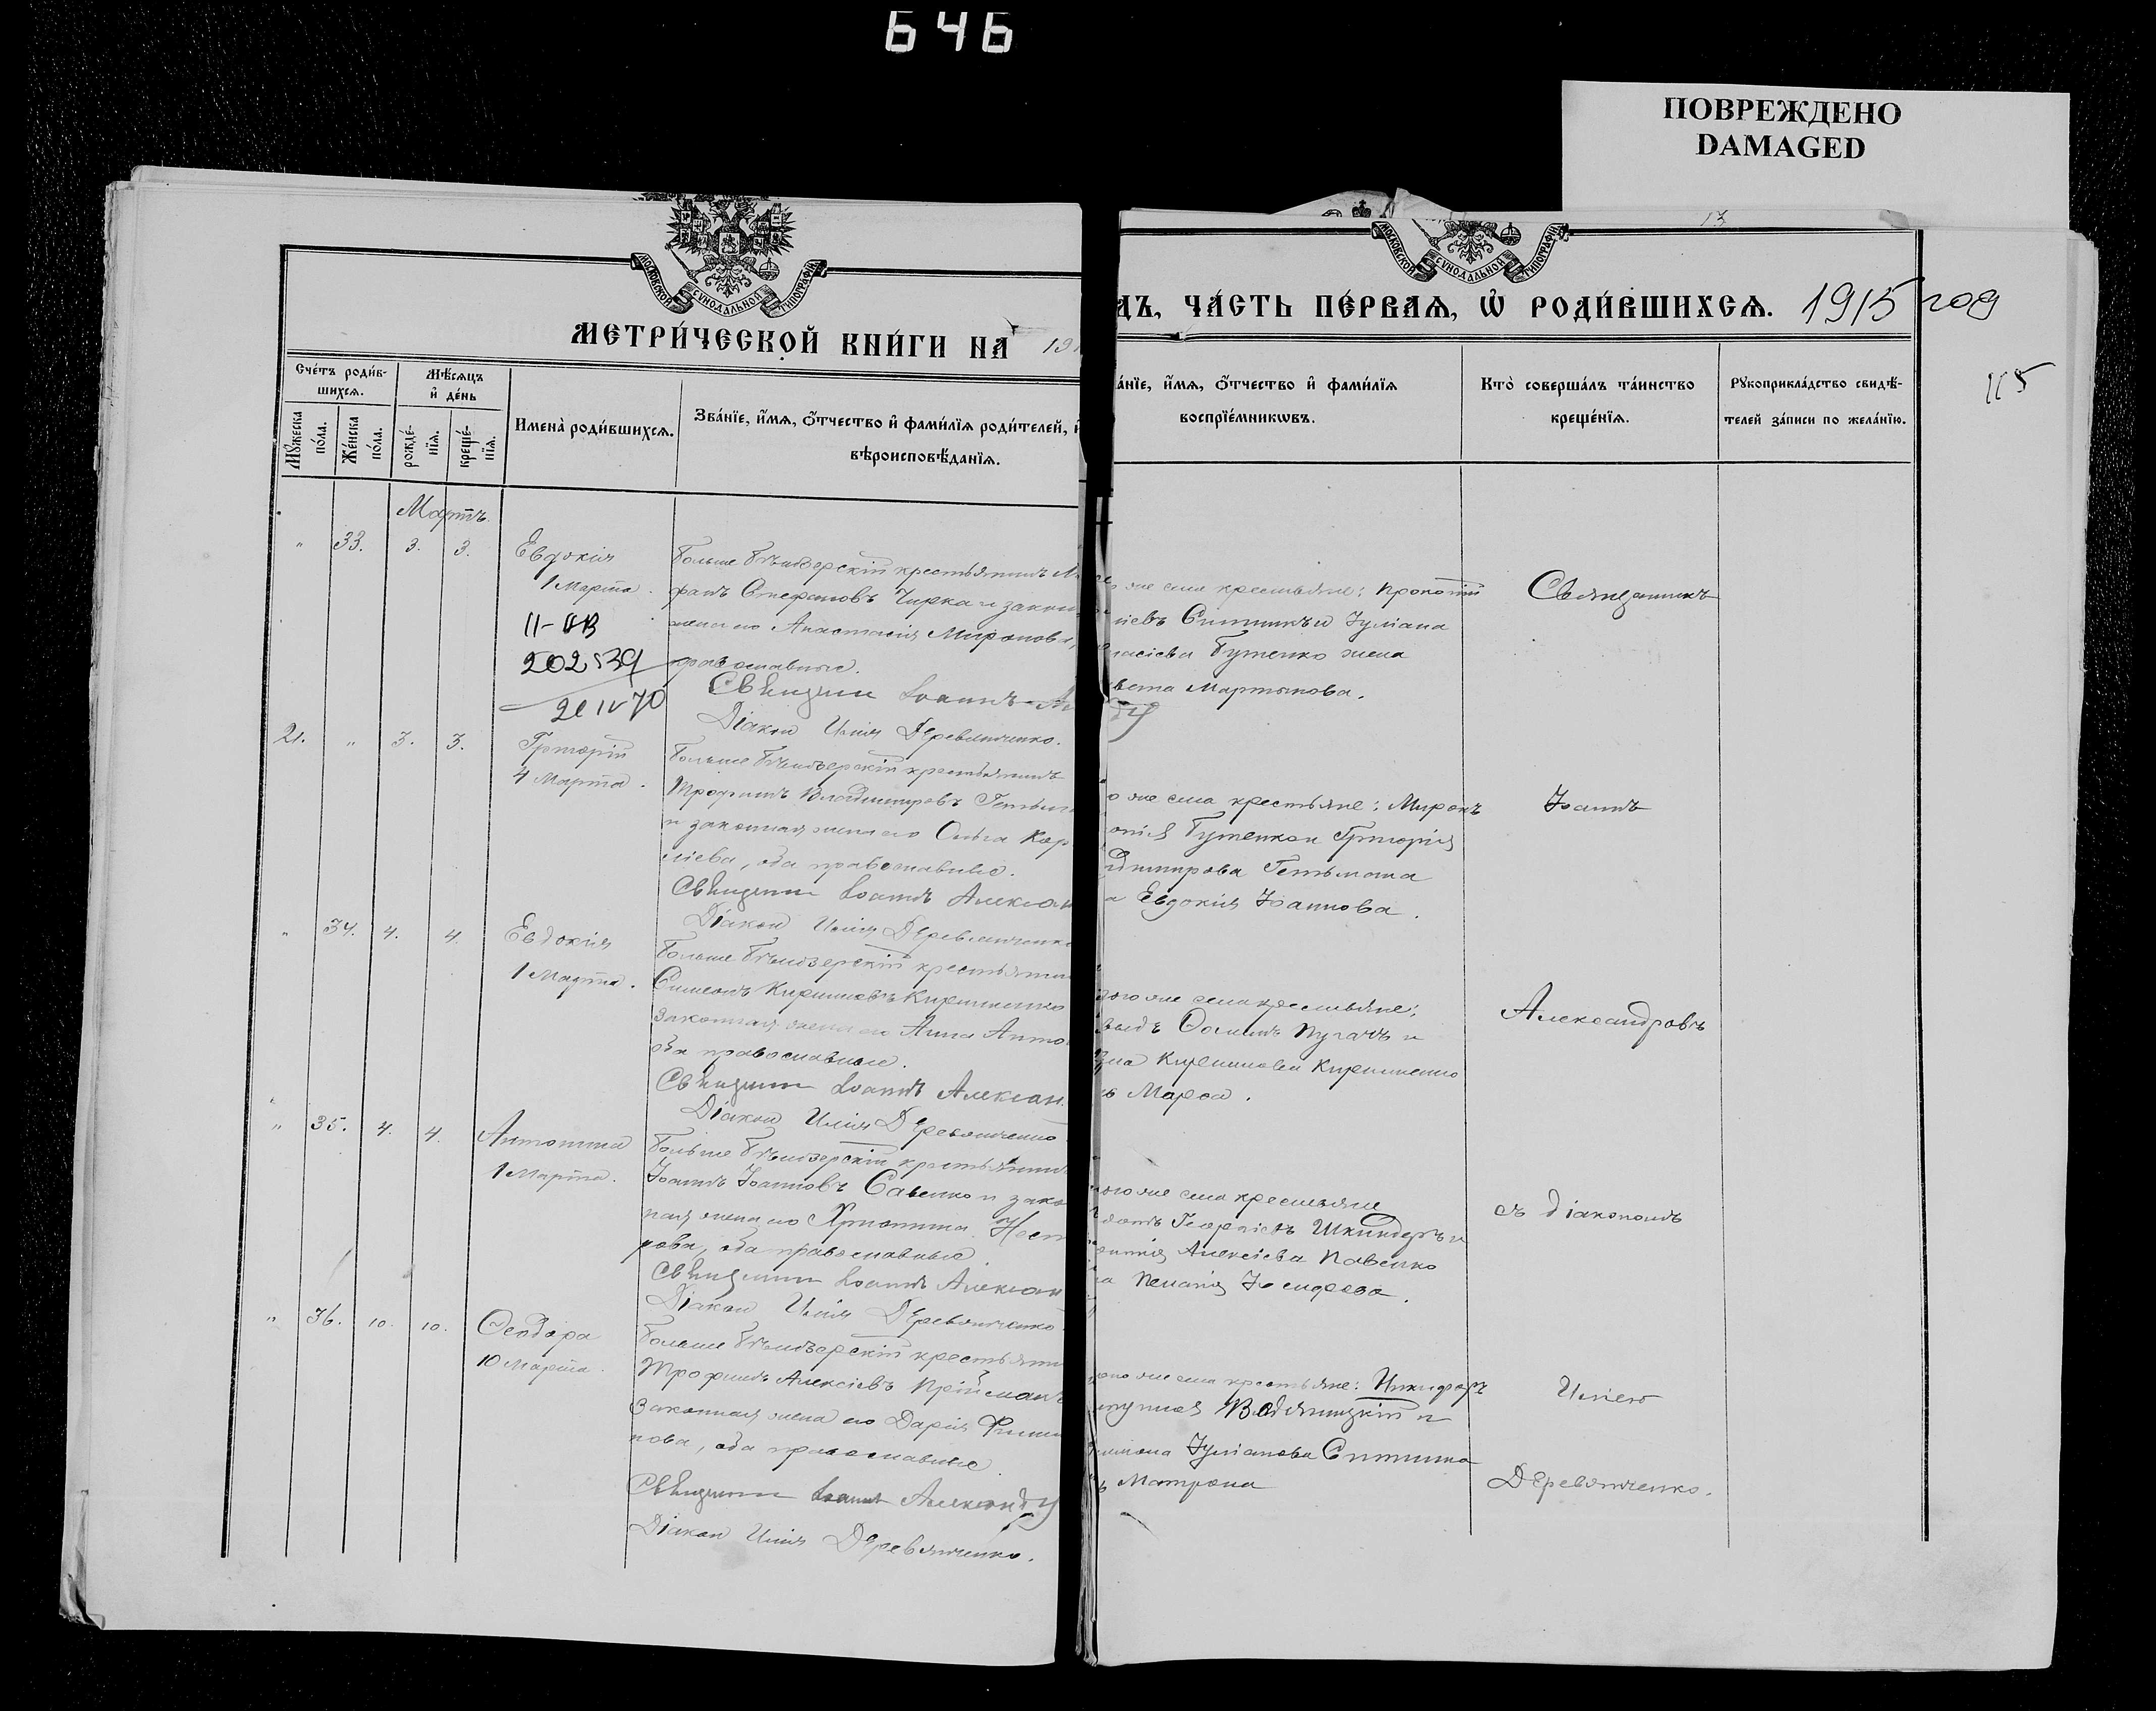 646
ПОВРЕЖДЕНО
DAMAGED
13
МОСКОВСКОЙ СѴНОДАЛЬНОЙ ТИПОГРАФІИ
МОСКОВСКОЙ СѴНОДАЛЬНОЙ ТИПОГРАФІИ
МЕТРИ́ЧЕСКОЙ КНИ́ГИ НА 191
ДЪ, ЧА́СТЬ ПЕ́РВАѦ, Ѡ҆ РОДИ́ВШИХСѦ. 1915 год
115
Сче́тъ роди́в-
шихсѧ.
Мꙋ́жеска по́ла.
Же́нска по́ла.
Мѣ́сѧцъ и҆ де́нь
рожде́-нїѧ.
креще́-нїѧ.
Имена̀ роди́вшихсѧ.
Зва́нїе, и҆́мѧ, ѻ҆́тчество и҆ фами́лїѧ роди́телей, и҆
вѣроисповѣ́данїѧ.
а́нїе, и҆́мѧ, ѻ҆́тчество и҆ фами́лїѧ
воспрїе́мникѡвъ.
Кто̀ соверша́лъ та́инство
креще́нїѧ.
Рꙋкоприкла́дство свидѣ́-
телей за́писи по жела́нїю.
Мартъ
" 33. 3. 3. Евдокія
1 Марта.
II-ЯВ
202539
20 IV 70
Больше Бѣлозерскій крестьянинъ
фанъ Стефановъ Чирка и закон
жена его Анастасія Миронова,
православные.
Священник Іоаннъ
Діакон Илія Деревянченко.
же села крестьяне: Прокопій
Ситникъ и Іуліана
Бутенко жена
Мартынова.
Священникъ
21. " 3. 3. Григорій
4 Марта.
Больше Бѣлозерскій крестьянинъ
Трофимъ Владимировъ Гетьман
и законная жена его Ольга Кор
иліева, оба православные.
Священник Іоаннъ Алексан
Діакон Илія Деревянченко
о же села крестьяне: Миронъ
Бутенко и Григорія
димирова Гетьмана
а Евдокія Іоаннова.
Іоаннъ
" 34. 4. 4. Евдокія
1 Марта.
Больше Бѣлозерскій крестьянин
Симеонъ Кирилловъ Кириленко
законная жена его Анна Анто
оба православные.
Священник Іоаннъ Алексан
Діакон Илія Деревянченко
ого же села крестьяне:
выдъ Ѳоминъ Пугачъ и
Кириллова Кириленко
ь Марѳа.
Александровъ
" 35. 4. 4. Антонина
1 Марта.
Больше Бѣлозерскій крестьянинъ
Іоаннъ Іоанновъ Савенко и зако
ная жена его Христина Нест
рова, оба православные.
Священник Іоаннъ Алексан
Діакон Илія Деревянченко
ого же села крестьяне
Георгіевъ Шкиндеръ и
Алексіева Павенко
на Пелагія Іосифова.
съ діакономъ
" 36. 10. 10. Ѳеодора
10 Марта.
Больше Бѣлозерскій крестьяни
Трофимъ Алексіевъ Прійсманъ
законная жена его Дарія Фили
пова, оба православные
Священник Іоаннъ Александр
Діакон Илія Деревянченко.
ого же села крестьяне: Никифоръ
Водяницкій и
Іуліанова Ситника
ь Матрона
Иліею
Деревянченко.